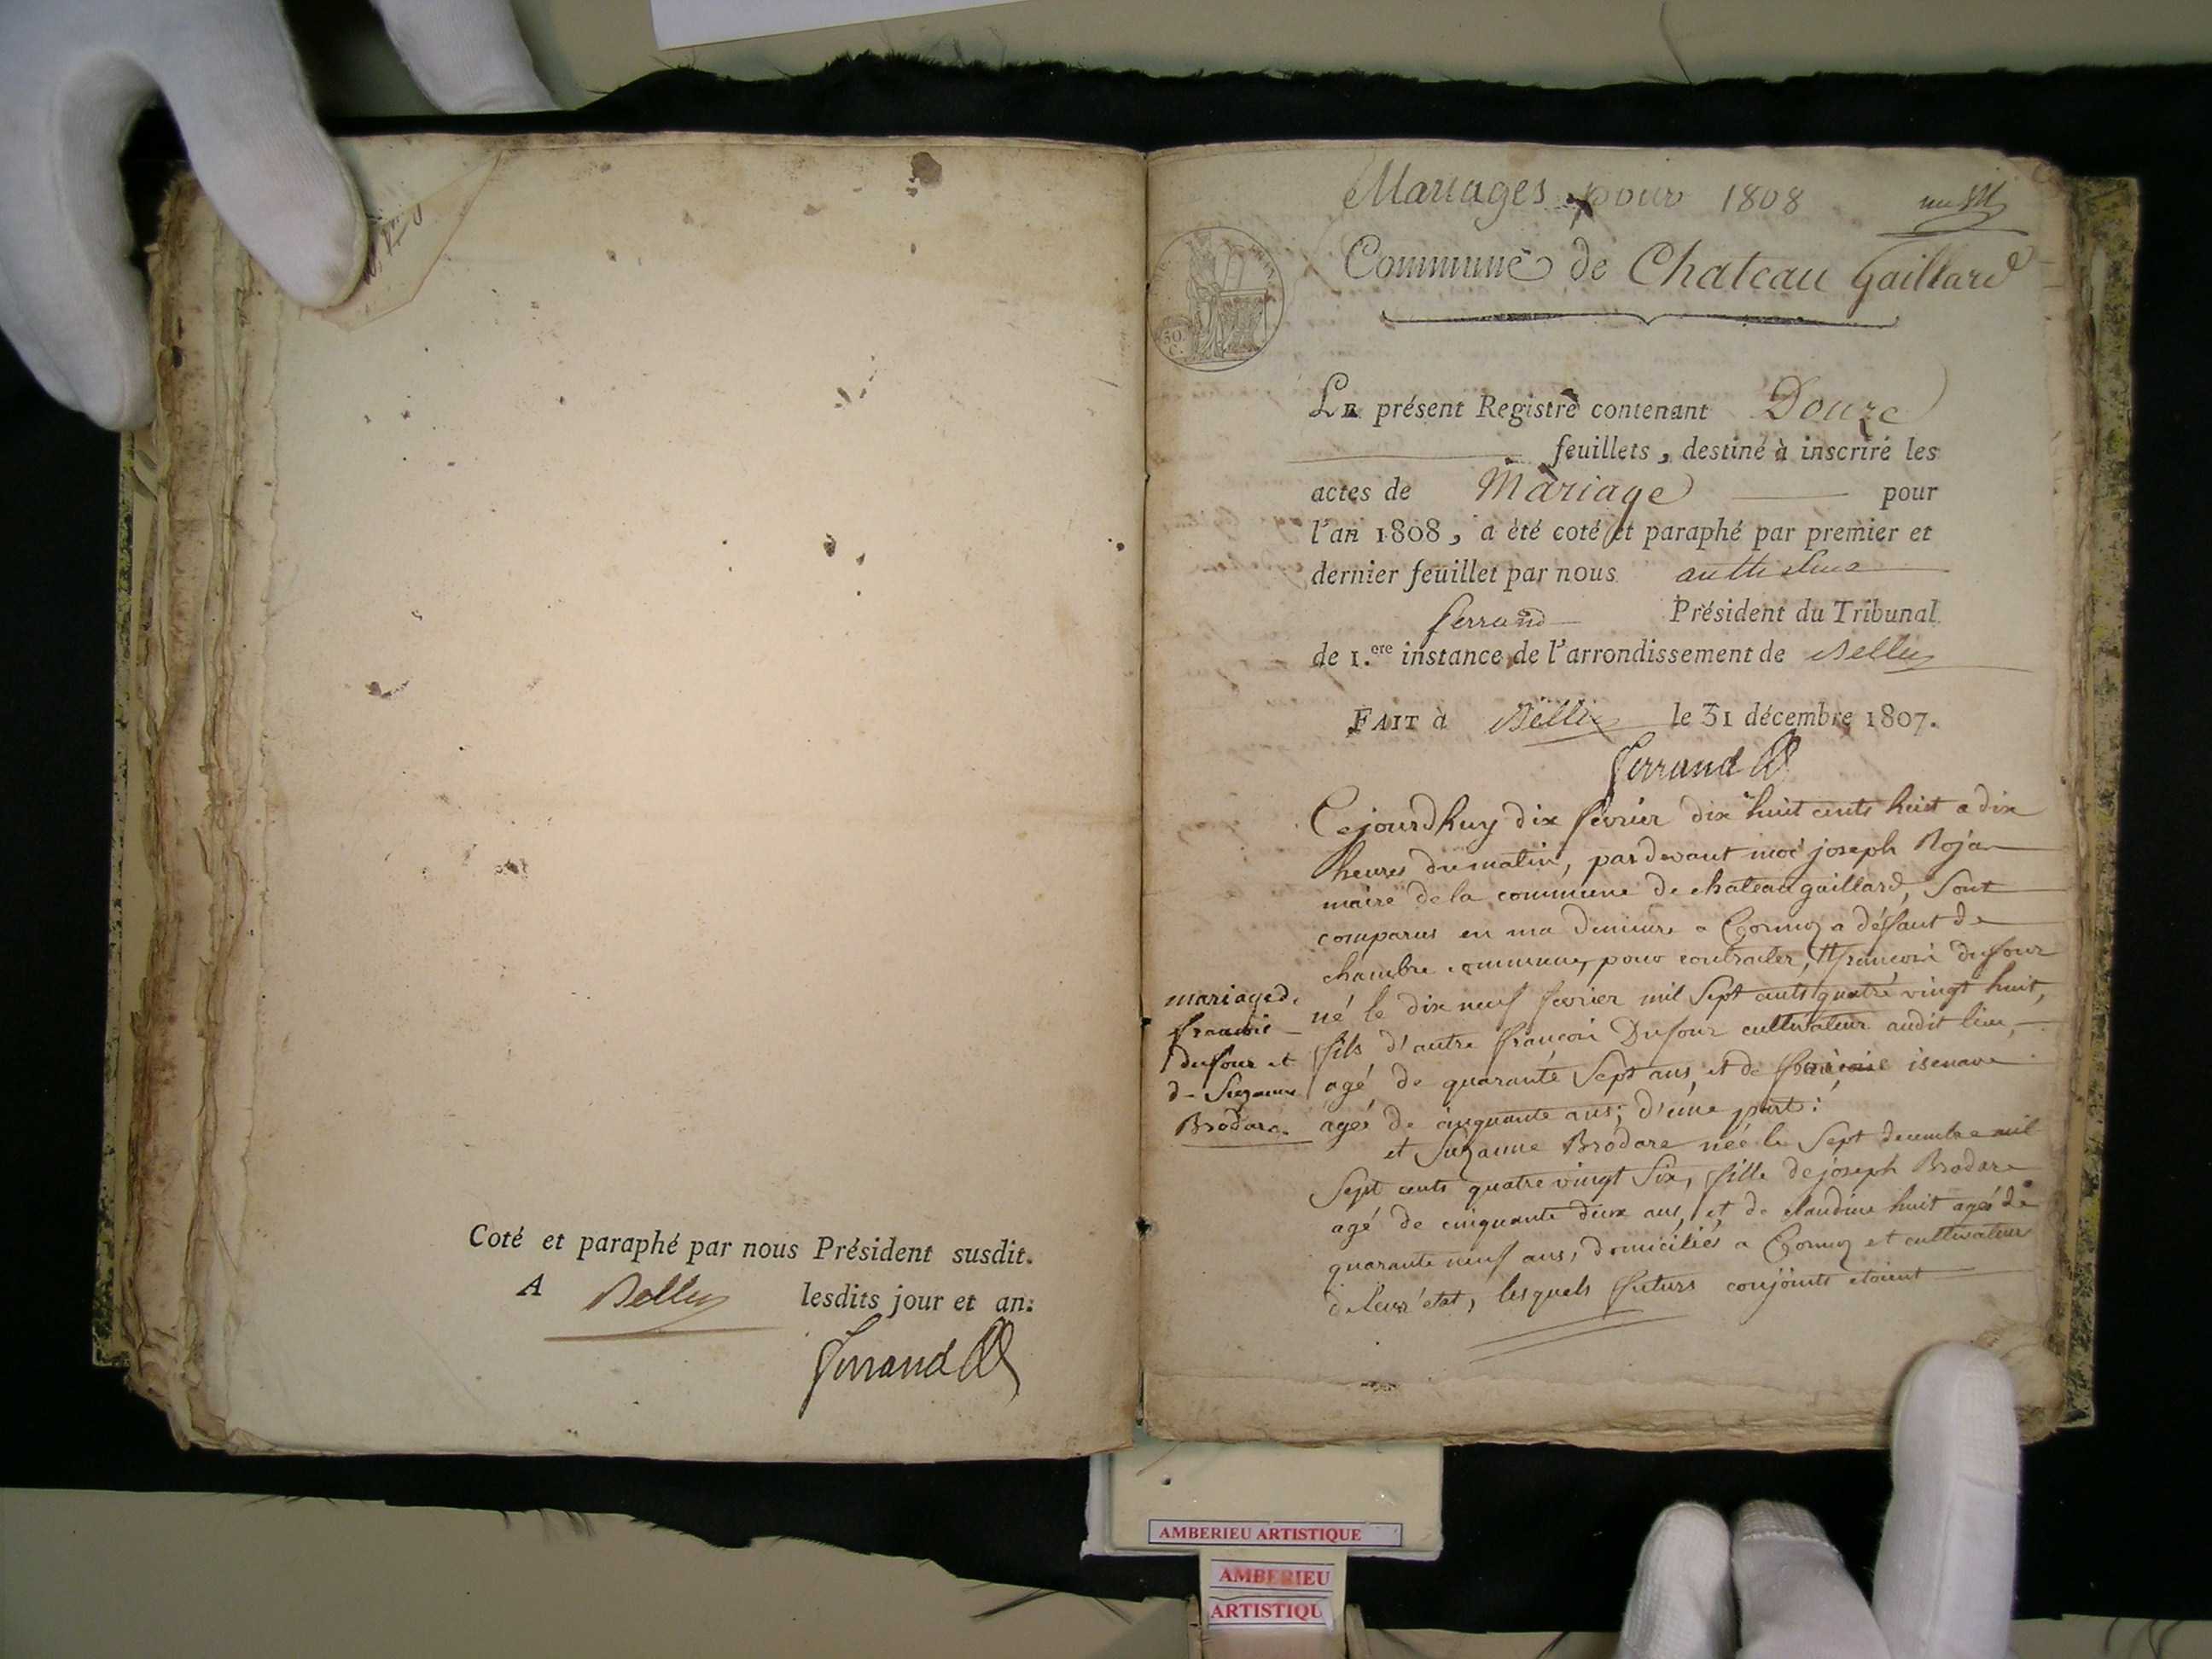 Coté et paraphé par nous Président susdit.
A Belley lesdits jour et an.
ferrand
Mariages pour 1808
Commune de Chateau Gaillard
50
C.
LE présent Registre contenant Douze
feuillets, destiné à inscrire les
actes de Mariage pour
l'an 1808, a été coté et paraphé par premier et
dernier feuillet par nous anthelme
ferrand Président du Tribunal
de 1.ere instance de l'arrondissement de Belley
FAIT à Belley le 31 décembre 1807.
ferrand
Cejourdhuy dix fevrier dix huit cents huit a dix
heures du matin, pardevant moi joseph Roja
maire de la commune de chateaugaillard, sont
comparus en ma demeure a Cormoz a défaut de
chambre commune, pour contracter, françois dufour
né le dix neuf fevrier mil sept cents quatre vingt huit,
fils d'autre françois Dufour cultivateur audit lieu,
agé de quarante sept ans, et de françoise isenave
agés de cinquante ans; d'une part:
et Suzanne Brodare née le sept decembre mil
sept cents quatre vingt six, fille de joseph Brodare
agé de cinquante deux ans, et de claudine huit agés de
quarante neuf ans, domiciliés a Cormoz et cultivateurs
de leur état, lesquels futurs conjoints etoient
mariage de
francois
dufour et
de Suzanne
Brodare.
AMBERIEU ARTISTIQUE
AMBERIEU
ARTISTIQU